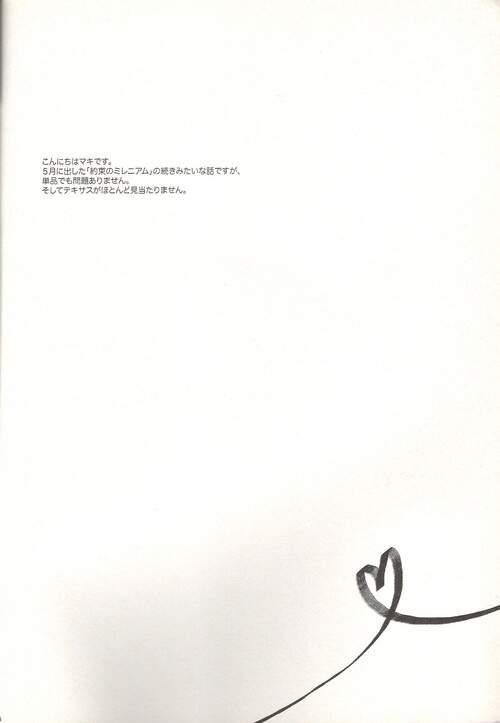 こんにちはマキです。
5月に出した「約束のミレニアム」の続きみたいな話ですが、
単品でも問題ありません。
そしてテキサスがほとんど見当たりません。